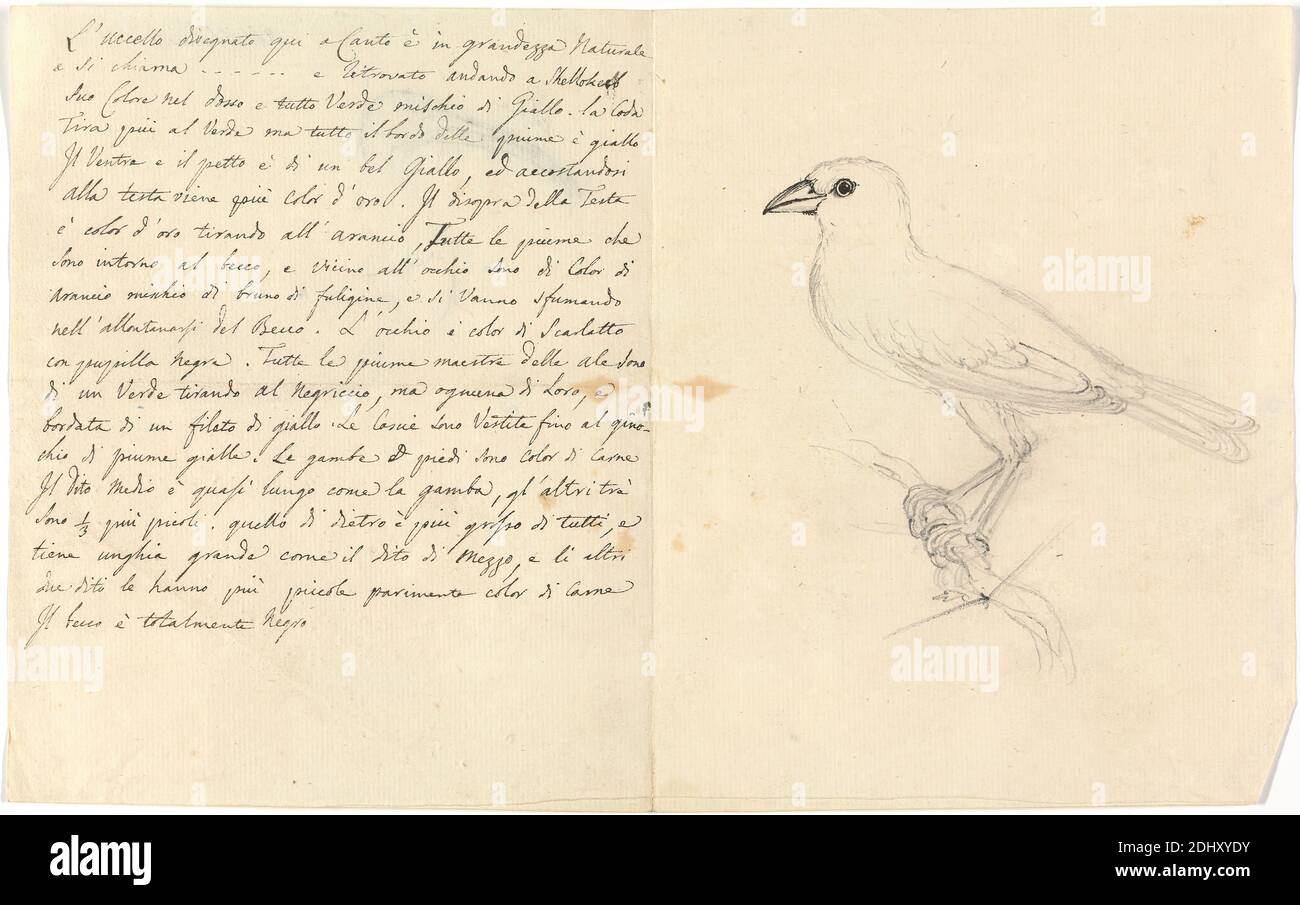 L'uccello disegnato qui a Canto è in grandezza Naturale
e si chiama - - - - - - e ritrovato andando a
Suo Colore nel dosso e tutto Verde mischio di Giallo. la Coda
Tira più al Verde ma tutto il bordo delle piume è giallo
Il Ventre e il petto è di un bel Giallo, ed accostandosi
alla testa viene più color d'oro. Il disopra della Testa
è color d'oro tirando all'arancio, Tutte le piume che
sono intorno al becco, e vicino all'occhio sono di Color di
arancio mischio di bruno di fuligine, e si Vanno sfumando
nell'allontanarsi del Becco. L'occhio è color di Scarlatto
con pupilla negra. Tutte le piume maestre delle ale sono
di un Verde tirando al Negriccio, ma ognuna di Loro, e
bordata di un filato di giallo. Le Cascie sono Vestite fino al gino-
chio di piume gialle. Le gambe e piedi sono color di Carne
Il Dito Medio è quasi lungo come la gamba, gl'altri trè
sono 1/3 più picoli. quello di dietro è più grosso di tutti, e
tiene unghia grande come il dito di Mezzo, e li altri
due dito le hanno più piccole parimente color di Carne
Il becco è totalmente Negro
alamy
alamy
alamy
alamy
alamy
alamy
Image ID: 2DHXYDY
www.alamy.com